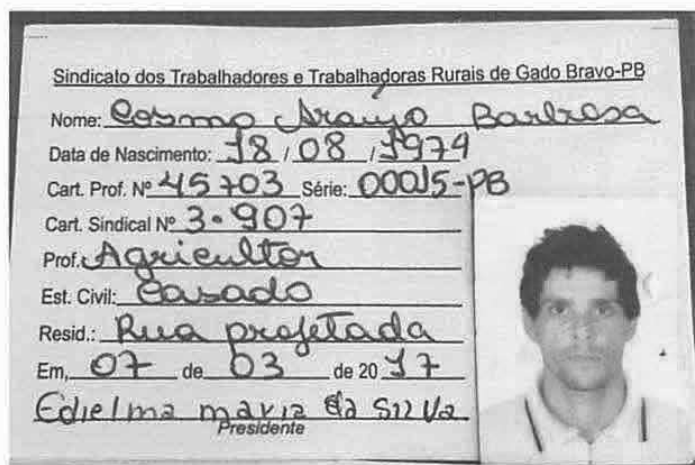 Sindicato dos Trabalhadores e Trabalhadoras Rurais de Gado Bravo-PB
Nome: Cosmo Araujo Barbosa
Data de Nascimento: 18 / 08 / 1974
Cart. Prof. Nº 45703 Série: 00015-PB
Cart. Sindical Nº 3.907
Prof.: Agricultor
Est. Civil: Casado
Resid.: Rua projetada
Em, 07 de 03 de 2017
Edielma maria da Silva
Presidente